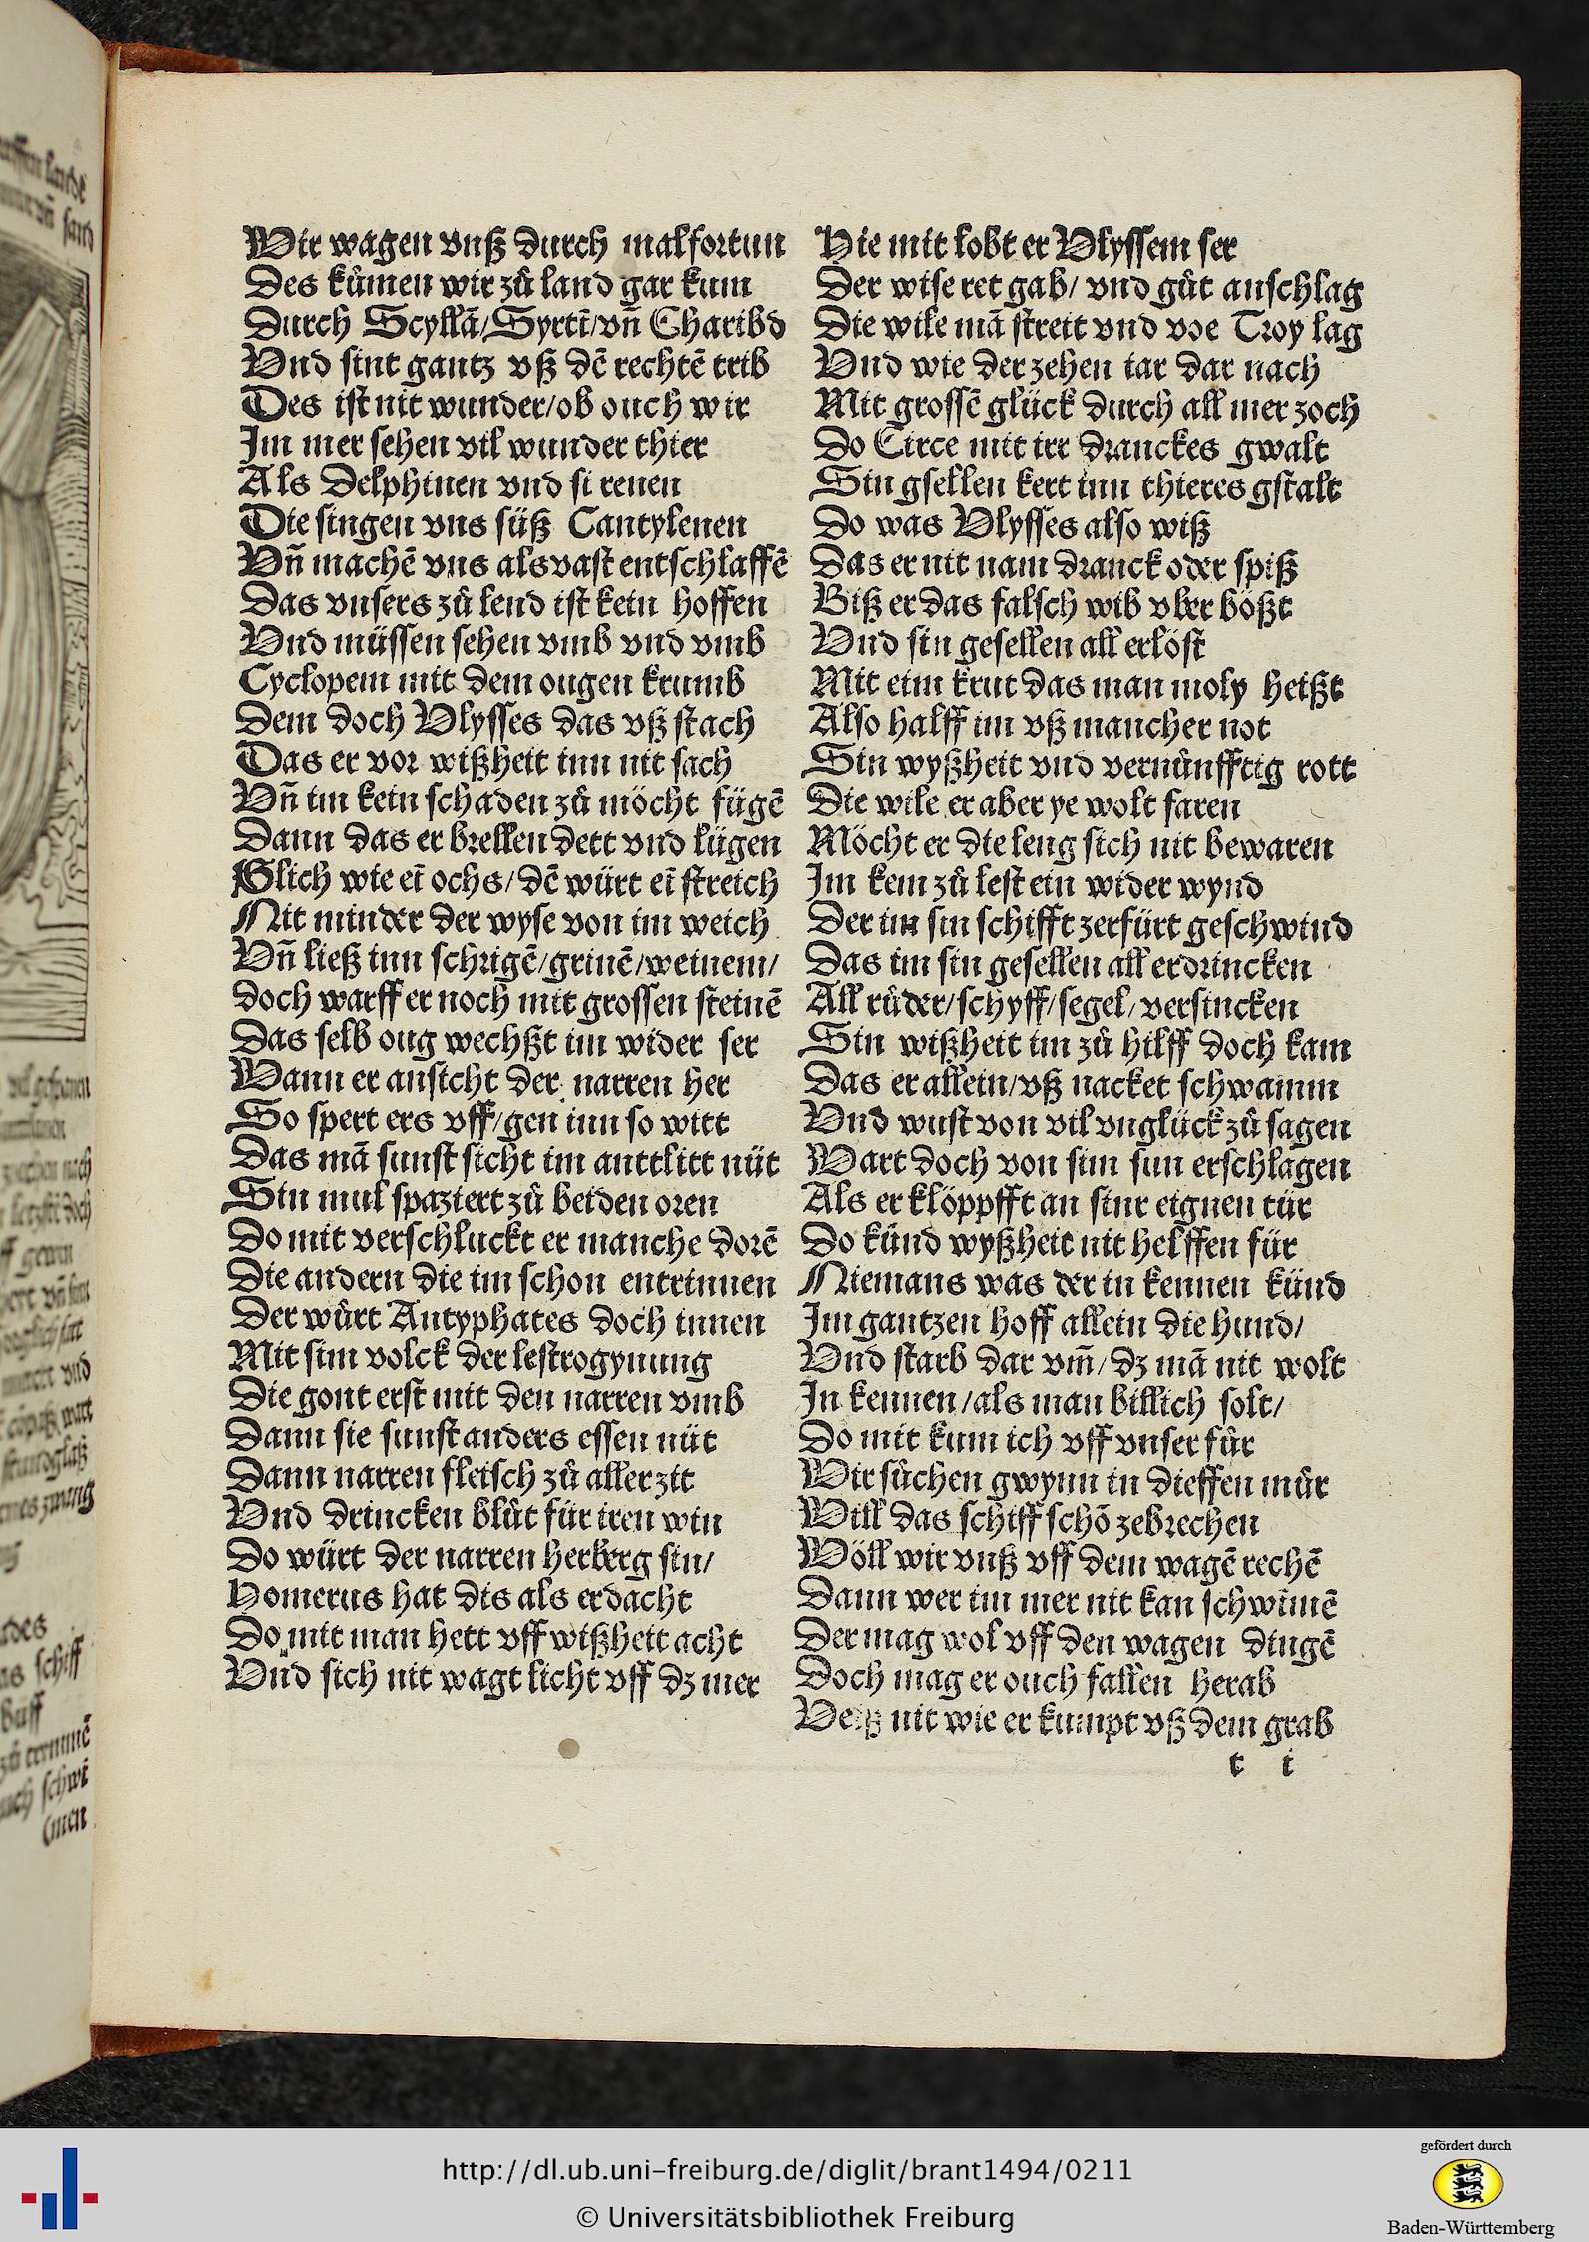 Wir wagen vnß durch malfortun
Des kûmen wir zů land gar kum
Durch Scyllā/Syrtī/vn̄ Charibd
Vnd sint gantz vß dē rechtē trib
Des ist nit wunder/ob ouch wir
Im mer sehen vil wunder thier
Als Delphinen vnd si renen
Die singen vns süß Cantylenen
Vn̄ machē vns als vast entschlaffē
Das vnsers zů lend ist kein hoffen
Vnd müssen sehen vmb vnd vmb
Cyclopem mit dem ougen krumb
Dem doch Vlysses das vß stach
Das er vor wißheit inn nit sach
Vn̄ im kein schaden zů möcht fügē
Dann das er brellen dett vnd lügen
Glich wie eī ochs/dē würt eī streich
Nit minder der wyse von im weich
Vn̄ ließ inn schrigē/grinē/weinem/
doch warff er noch mit grossen steinē
Das selb oug wechßt im wider ser
Wann er ansicht der narren her
So spert ers vff/gen inn so witt
Das mā sunst sicht im anttlitt nüt
Sin mul spaziert zů beiden oren
Do mit verschluckt er manche dorē
Die andern die im schon entrinnen
Der würt Antyphates doch innen
Mit sim volck der lestrogynung
Die gont erst mit den narren vmb
Dann sie sunst anders essen nüt
Dann narren fleisch zů aller zit
Vnd drincken blůt für iren win
Do würt der narren herberg sin/
Homerus hat dis als erdacht
Do mit man hett vff wißheit acht
Vnd sich nit wagt licht vff dz mer
Hie mit lobt er Vlyssem ser
Der wise ret gab/vnd gůt anschlag
Die wile mā streit vnd vor Troy lag
Vnd wie der zehen iar dar nach
Mit grossē glück durch all mer zoch
Do Circe mit irr dranckes gwalt
Sin gsellen kert inn thieres gstalt
Do was Vlysses also wiß
Das er nit nam dranck oder spiß
Biß er das falsch wib vber bößt
Vnd sin gesellen all erlöst
Mit eim krut das man moly heißt
Also halff im vß mancher not
Sin wyßheit vnd vernûnfftig rott
Die wile er aber ye wolt faren
Möcht er die leng sich nit bewaren
Im kem zů lest ein wider wynd
Der im sin schifft zerfürt geschwind
Das im sin gesellen all erdrincken
All růder/schyff/segel/versincken
Sin wißheit im zů hilff doch kam
Das er allein/vß nacket schwamm
Vnd wust von vil vnglück zů sagen
Wart doch von sim sun erschlagen
Als er klöppfft an sinr eignen tür
Do künd wyßheit nit helffen für
Niemans was der in kennen künd
Im gantzen hoff allein die hund/
Vnd starb dar vm̄/dz mā nit wolt
In kennen/als man billich solt/
Do mit kum ich vff vnser fůr
Wir sůchen gwynn in dieffen můr
Will das schiff schō zebrechen
Wöll wir vnß vff dem wagē rechē
Dann wer im mer nit kan schwīmē
Der mag wol vff den wagen dingē
Doch mag er ouch fallen herab
Weiß nit wie er kumpt vß dem grab
t i
http://dl.ub.uni-freiburg.de/diglit/brant1494/0211
© Universitätsbibliothek Freiburg
gefördert durch
Baden-Württemberg